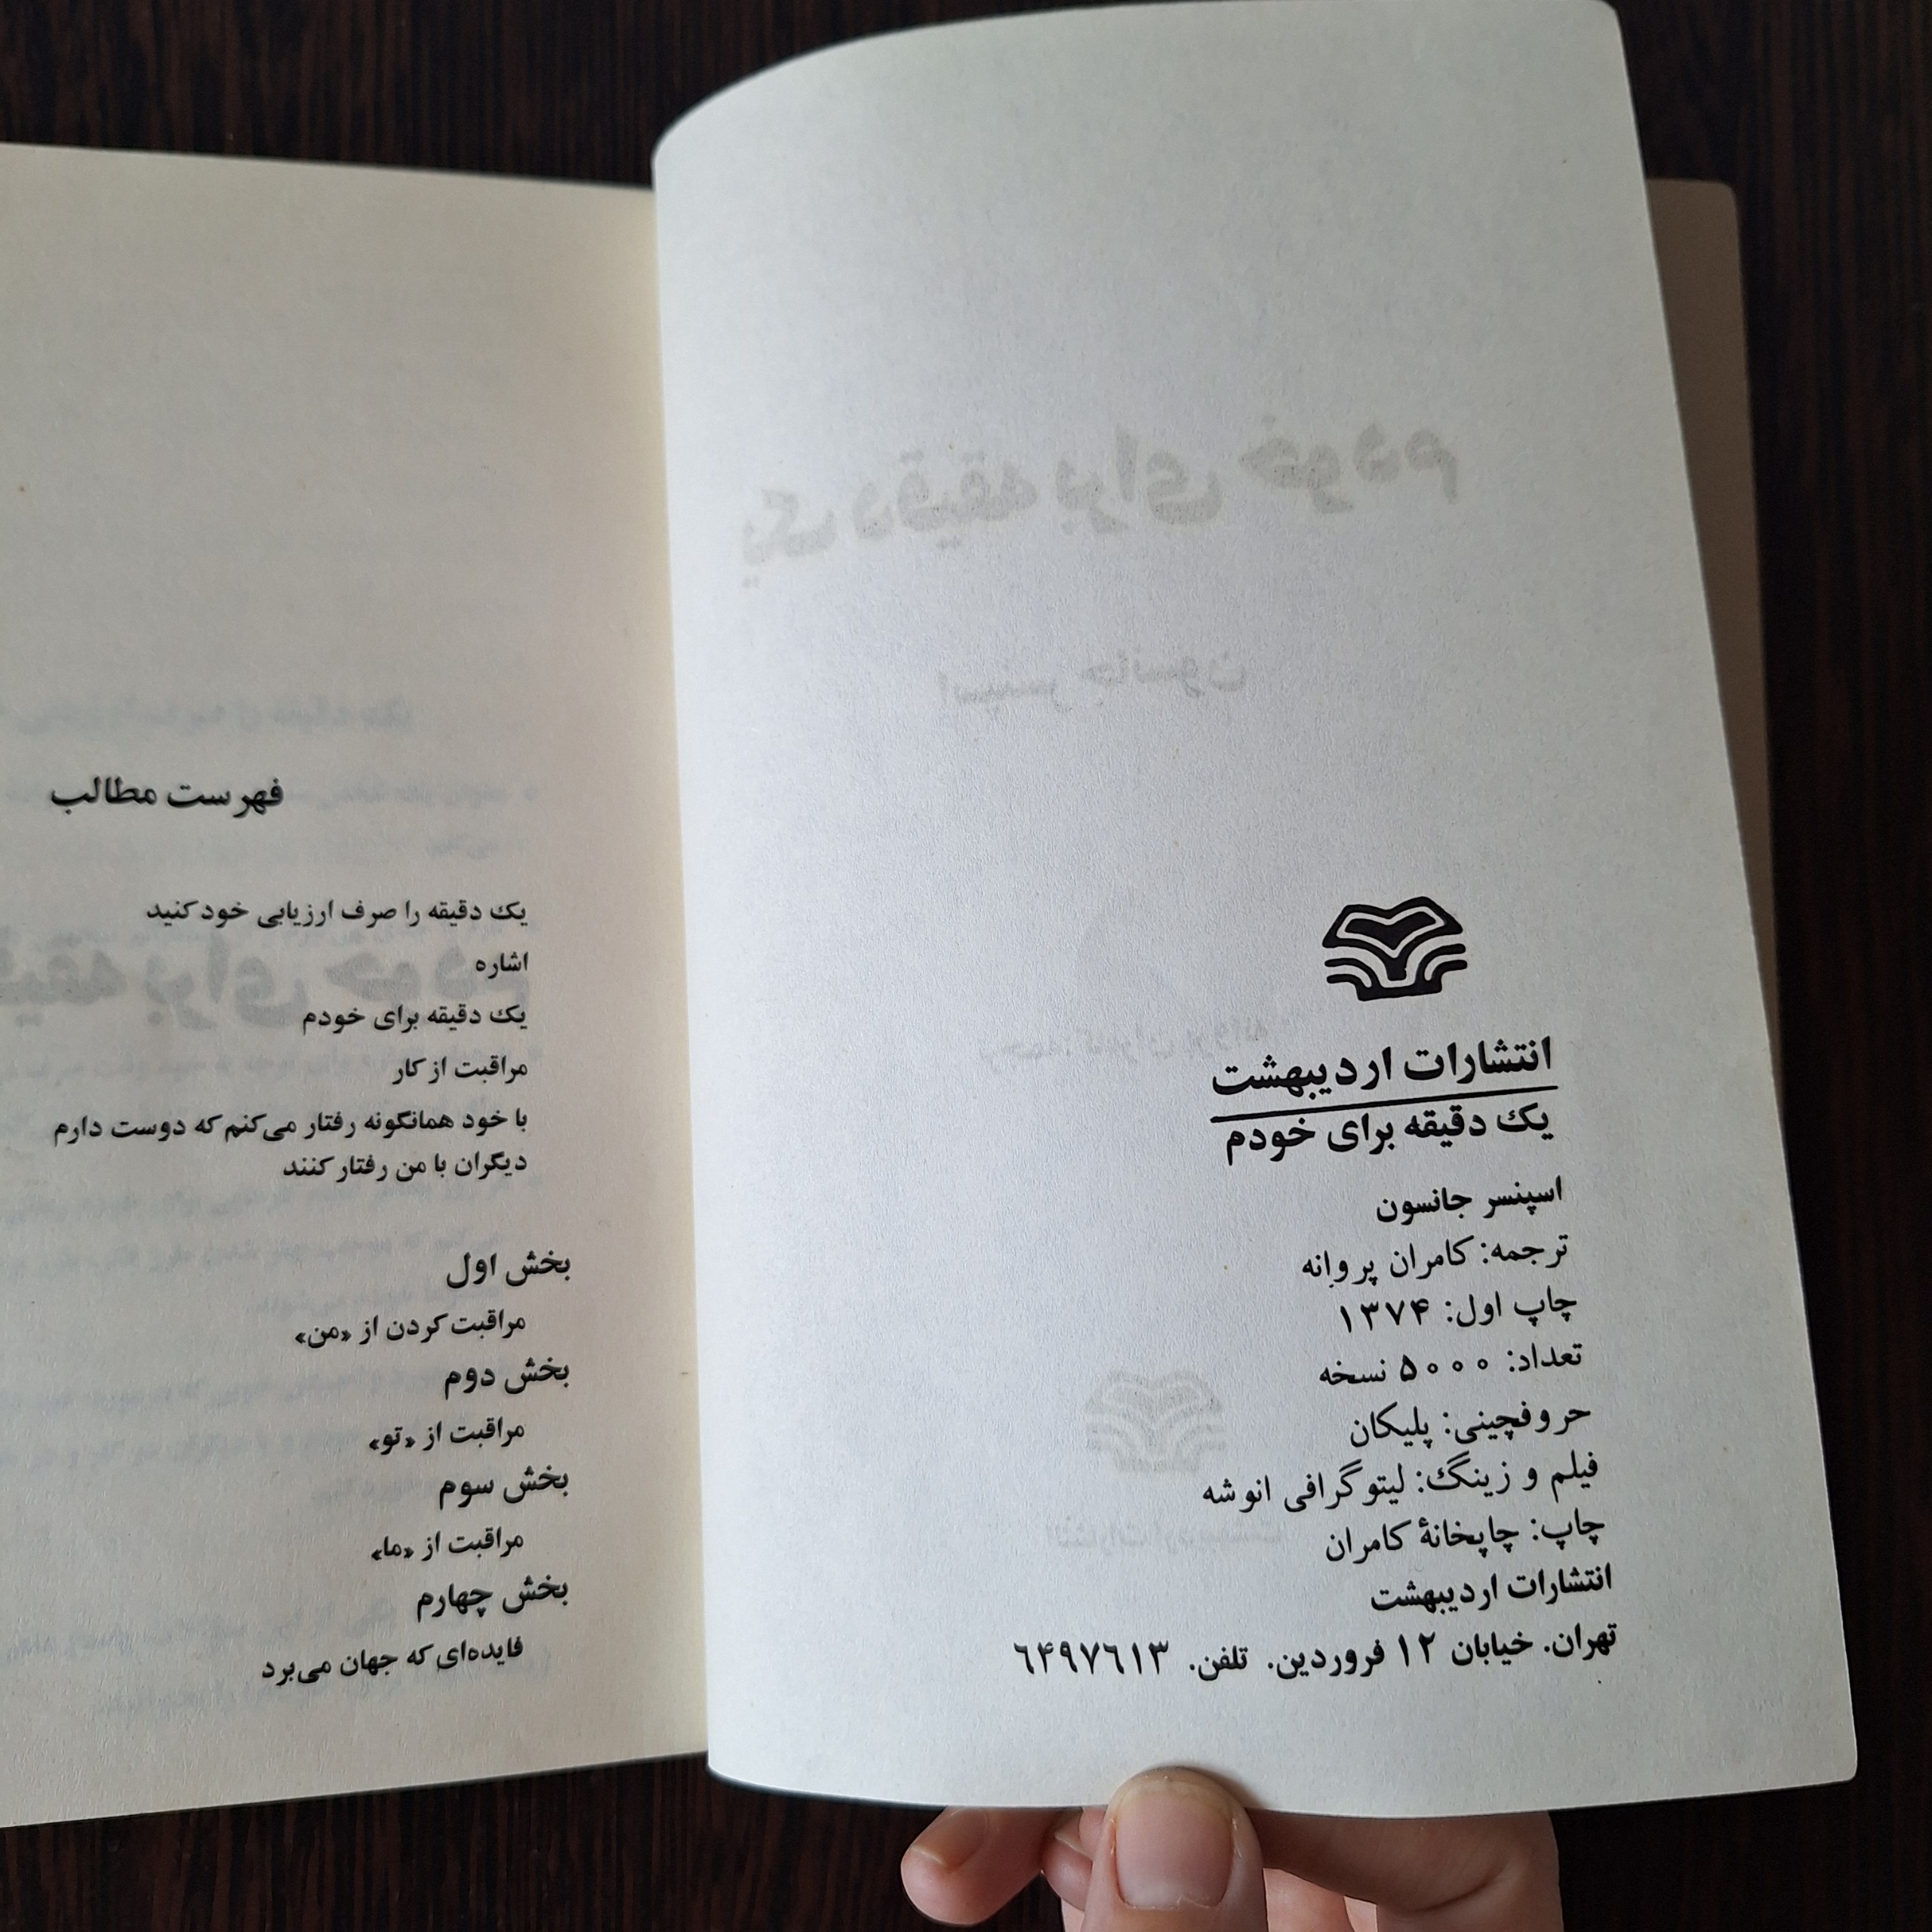 انتشارات اردیبهشت
یک دقیقه برای خودم
اسپنسر جانسون
ترجمه: کامران پروانه
چاپ اول: ۱۳۷۴
تعداد: ۵۰۰۰ نسخه
حروفچینی: پلیکان
فیلم و زینگ: لیتوگرافی انوشه
چاپ: چاپخانهٔ کامران
انتشارات اردیبهشت
تهران. خیابان ۱۲ فروردین. تلفن. ۶۴۹۷۶۱۳
فهرست مطالب
یک دقیقه را صرف ارزیابی خود کنید
اشاره
یک دقیقه برای خودم
مراقبت از کار
با خود همانگونه رفتار می‌کنم که دوست دارم
دیگران با من رفتار کنند
بخش اول
مراقبت کردن از «من»
بخش دوم
مراقبت از «تو»
بخش سوم
مراقبت از «ما»
بخش چهارم
فایده‌ای که جهان می‌برد